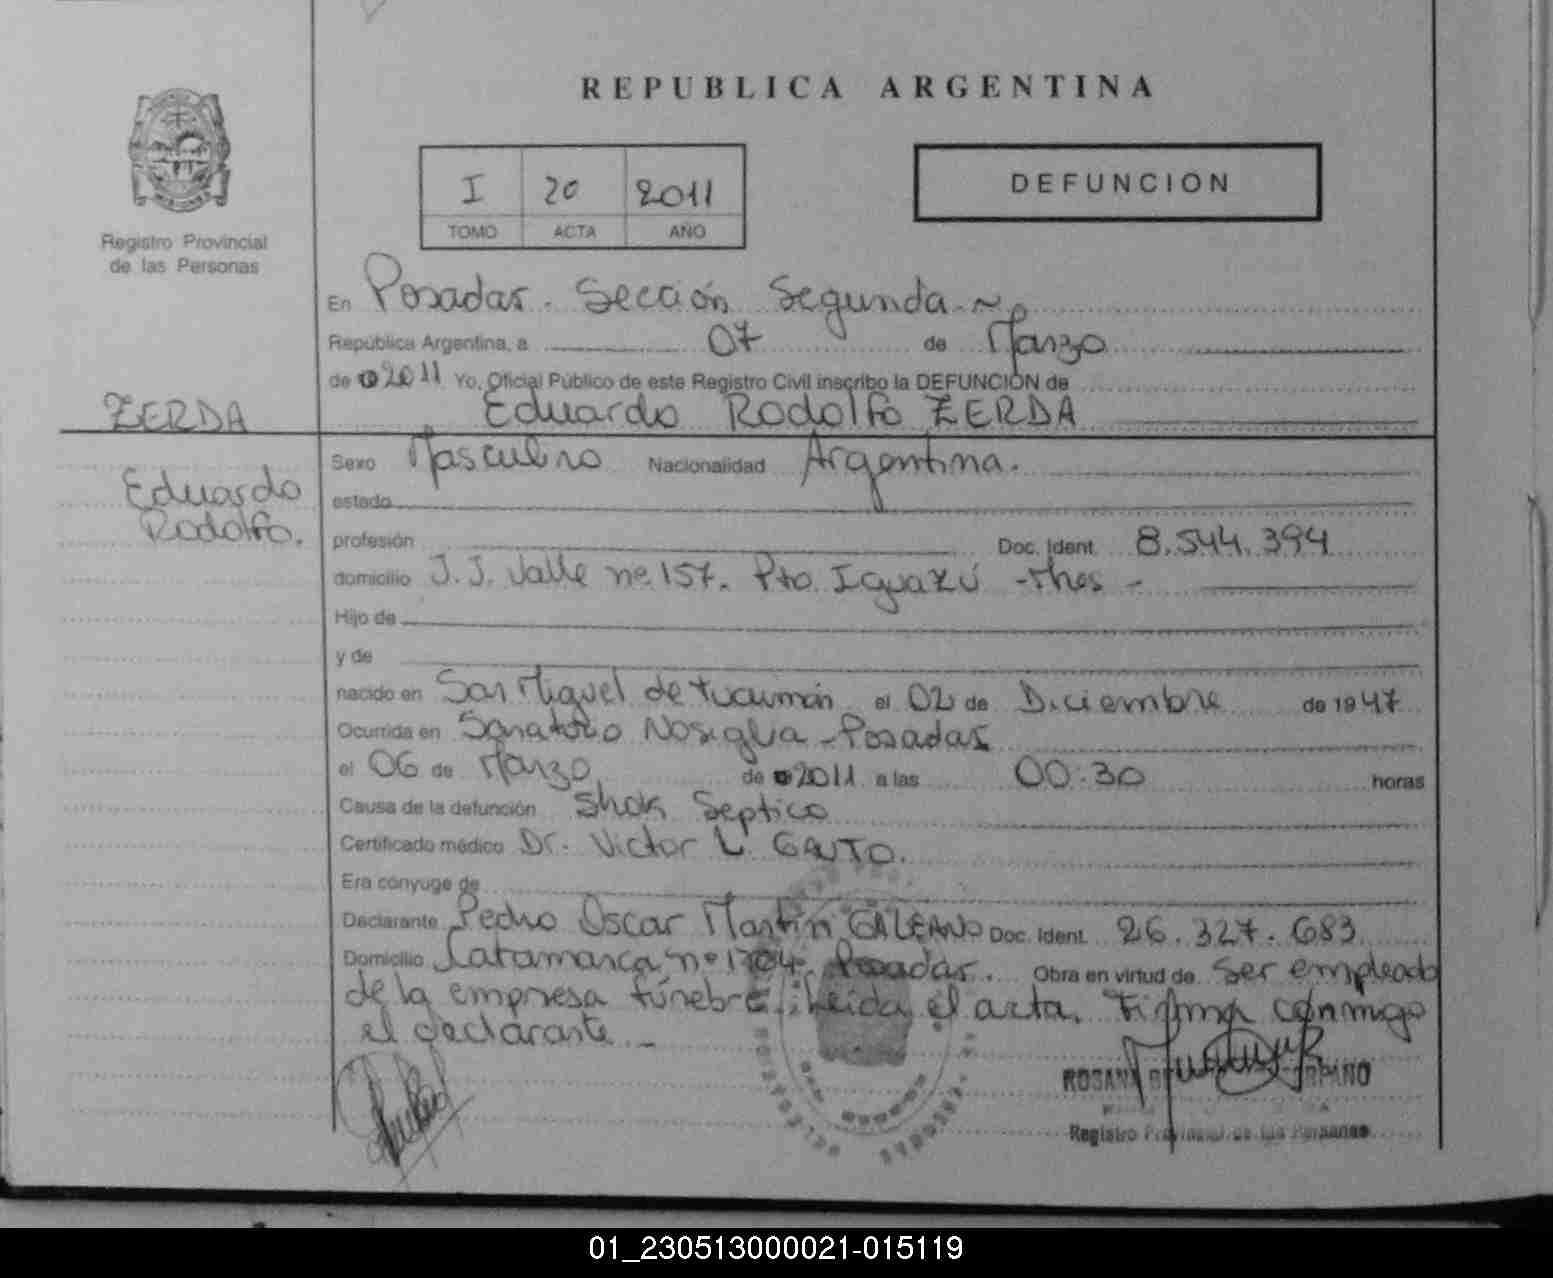 REPUBLICA ARGENTINA
Registro Provincial
de las Personas
I 20 2011
TOMO ACTA AÑO
DEFUNCION
En Posadas. Sección Segunda.~
República Argentina, a 07 de Marzo
de 2011 Yo, Oficial Público de este Registro Civil inscribo la DEFUNCIÓN de
Eduardo Rodolfo ZERDA
ZERDA
Eduardo
Rodolfo.
Sexo Masculino Nacionalidad Argentina.
estado
profesión Doc. Ident. 8.544.394
domicilio J.J. Valle nº 157. Pto. Iguazú -Mnes-
Hijo de
y de
nacido en San Miguel de tucumán el 02 de Diciembre de 1947
Ocurrida en Sanatorio Nosiglia - Posadas
el 06 de Marzo de 2011 a las 00:30 horas
Causa de la defunción Shok Septico
Certificado médico Dr. Victor L. GAUTO.
Era cónyuge de
Declarante Pedro Oscar Martín GALEANO Doc. Ident. 26.327.683
Domicilio Catamarca nº 1704. Posadas. Obra en virtud de Ser empleado
de la empresa fúnebre; Leída el acta, Firma conmigo
el declarante -
ROSANA
Registro Provincial de las Personas
01_230513000021-015119